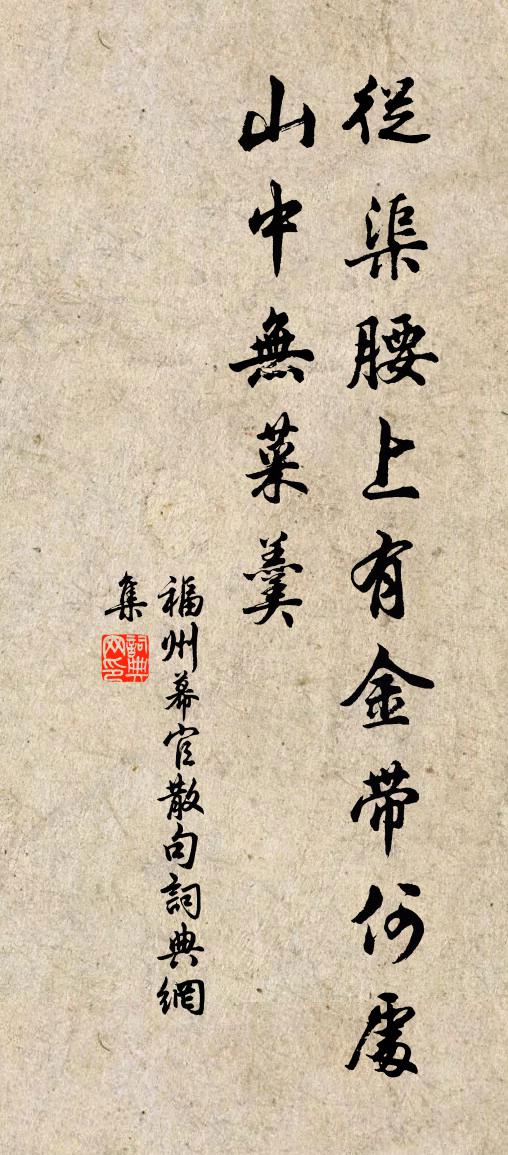 從渠腰上有金帶何處
山中無菜羹
福州幕官散句詞典網
集
詞典
网印